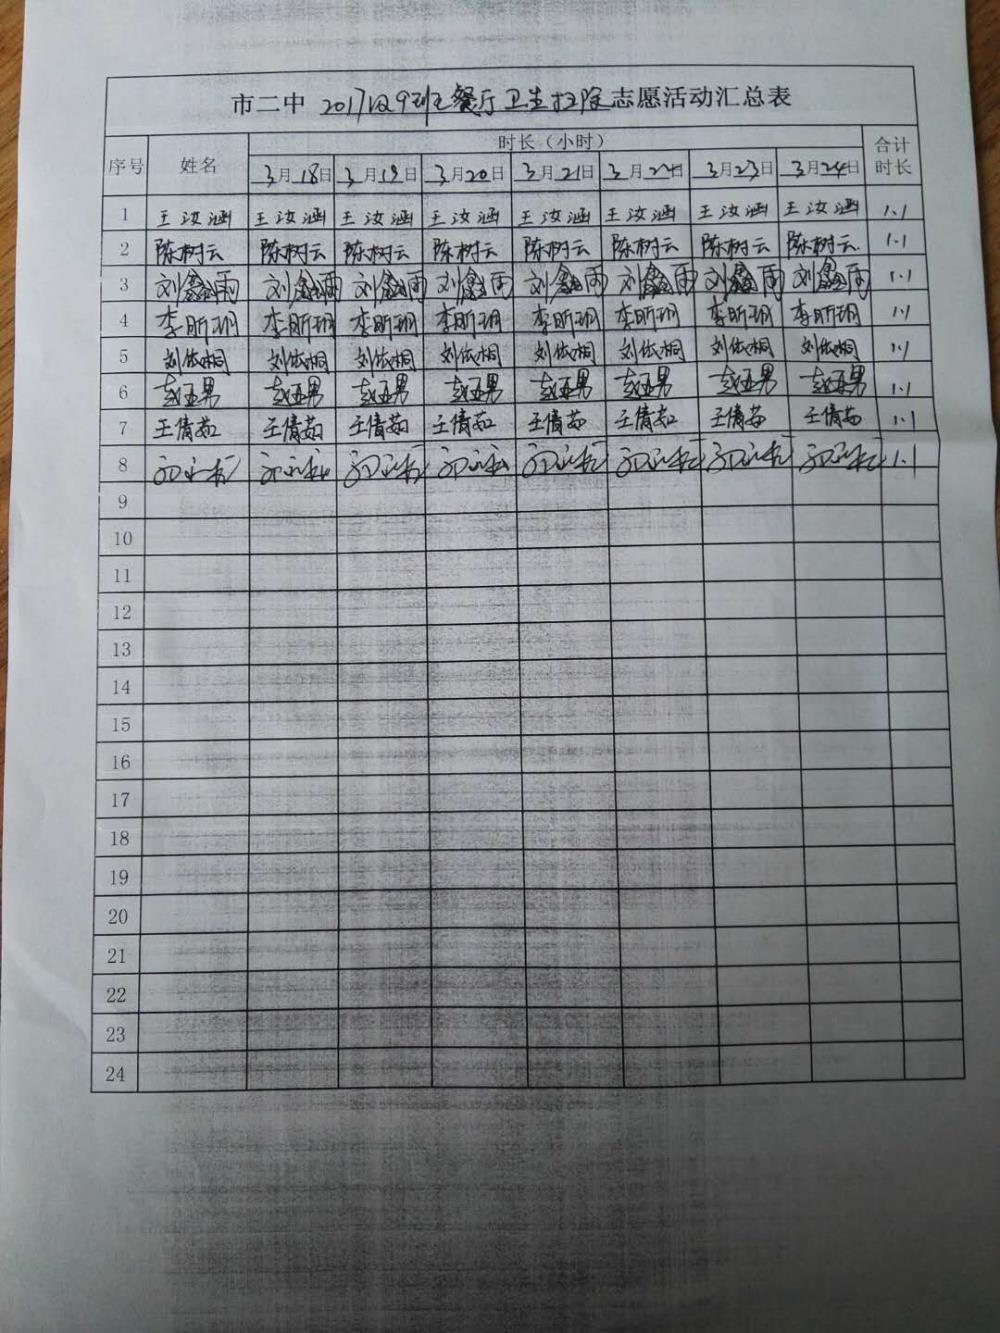 市二中 2017级9班餐厅卫生扫除志愿活动汇总表
序号 姓名 时长（小时） 合计时长
3月18日 3月19日 3月20日 3月21日 3月22日 3月23日 3月24日
1 王汝涵 王汝涵 王汝涵 王汝涵 王汝涵 王汝涵 王汝涵 王汝涵 1.1
2 陈树云 陈树云 陈树云 陈树云 陈树云 陈树云 陈树云 陈树云 1.1
3 刘鑫雨 刘鑫雨 刘鑫雨 刘鑫雨 刘鑫雨 刘鑫雨 刘鑫雨 刘鑫雨 1.1
4 李昕玥 李昕玥 李昕玥 李昕玥 李昕玥 李昕玥 李昕玥 李昕玥 1.1
5 刘依桐 刘依桐 刘依桐 刘依桐 刘依桐 刘依桐 刘依桐 刘依桐 1.1
6 赵亚男 赵亚男 赵亚男 赵亚男 赵亚男 赵亚男 赵亚男 赵亚男 1.1
7 王倩茹 王倩茹 王倩茹 王倩茹 王倩茹 王倩茹 王倩茹 王倩茹 1.1
8 1.1
9
10
11
12
13
14
15
16
17
18
19
20
21
22
23
24